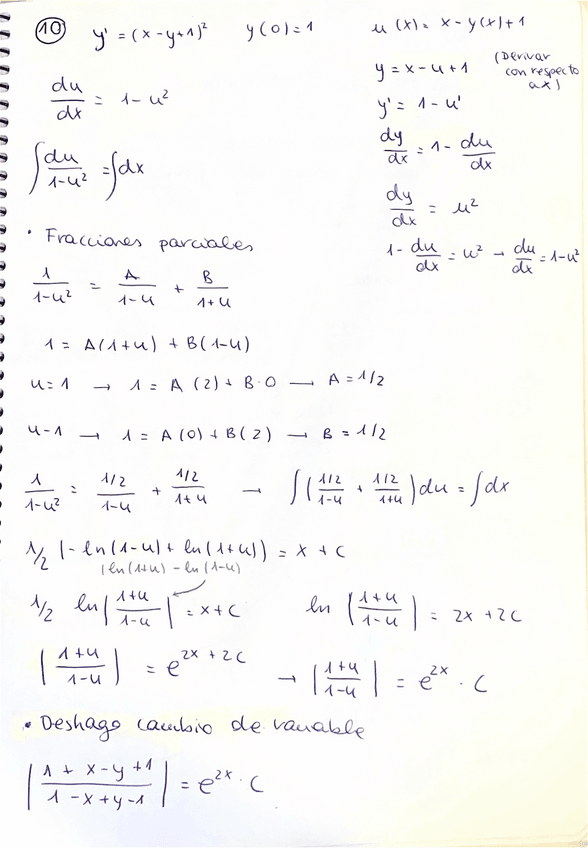 10 y' = (x-y+1)² y(0)=1 u(x) = x-y(x)+1
y = x-u+1 (Derivar con respecto a x)
y' = 1-u'
du/dx = 1-u²
dy/dx = 1- du/dx
∫ du/1-u² = ∫dx
dy/dx = u²
1- du/dx = u² → du/dx = 1-u²
• Fracciones parciales
1/1-u² = A/1-u + B/1+u
1 = A(1+u) + B(1-u)
u=1 → 1 = A (2) + B·0 → A = 1/2
u-1 → 1 = A (0) + B(2) → B = 1/2
1/1-u² = 1/2/1-u + 1/2/1+u → ∫(1/2/1-u + 1/2/1+u)du = ∫dx
1/2 (-ln(1-u) + ln(1+u)) = x + c
(ln(1+u) - ln(1-u)
1/2 ln|1+u/1-u| = x+c ln|1+u/1-u| = 2x + 2c
|1+u/1-u| = e^(2x+2c) → |1+u/1-u| = e^(2x) · C
• Deshago cambio de variable
|1+x-y+1/1-x+y-1| = e^(2x) · C